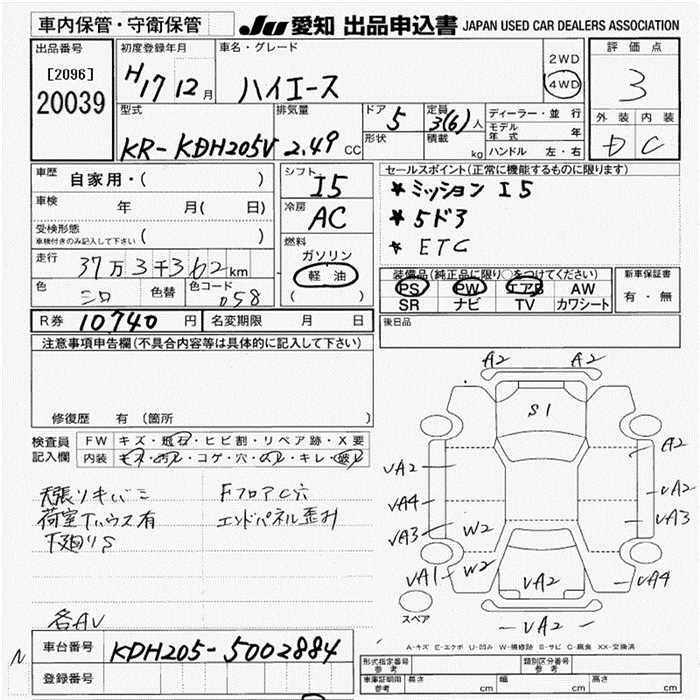 車内保管・守衛保管
JU 愛知 出品申込書 JAPAN USED CAR DEALERS ASSOCIATION
出品番号
[2096]
20039
初度登録年月
H17 12月
車名・グレード
ハイエース
2WD
4WD
評価点
3
外装 内装
D C
型式
KR-KDH205V
排気量
2.49 CC
ドア
5
形状
定員
3(6)人
積載
kg
ディーラー・並行
モデル年式 年
ハンドル 左・右
車歴
自家用・( )
車検
年 月( 日)
受検形態
車検付きのみ記入して下さい ( )
走行
37万3千362km
色
シロ
色替
色コード
058
シフト
I5
冷房
AC
燃料
ガソリン
軽油
( )
セールスポイント(正常に機能するものに限ります)
★ミッション I5
★5ド3
★ETC
装備品(純正品に限り○をつけてください)
PS PW エアB AW
SR ナビ TV カワシート
新車保証書
有・無
後日品
R券 10740 円
名変期限 月 日
注意事項申告欄(不具合内容等は具体的に記入して下さい)
修復歴 有(箇所 )
検査員記入欄
FW キズ・飛石・ヒビ割・リペア跡・X要
内装 キズ・汚れ・コゲ・穴・のり・キレ・破れ
天張リキバミ
荷室Tハウス有
下廻りS
FフロアC穴
エンドパネル歪み
各AV
A2 A2
S1
A2
√A2
√A2
√A4
√A3
√A3
W2
W2
√A1
√A2
√A4
√A2
スペア
A-キズ E-エクボ U-凹み W-補修跡 S-サビ C-腐食 XX-交換済
N
車台番号
KDH205-5002884
登録番号
型式指定番号 参考
類別区分番号 参考
車庫証明用 参考
長さ cm
幅 cm
高さ cm